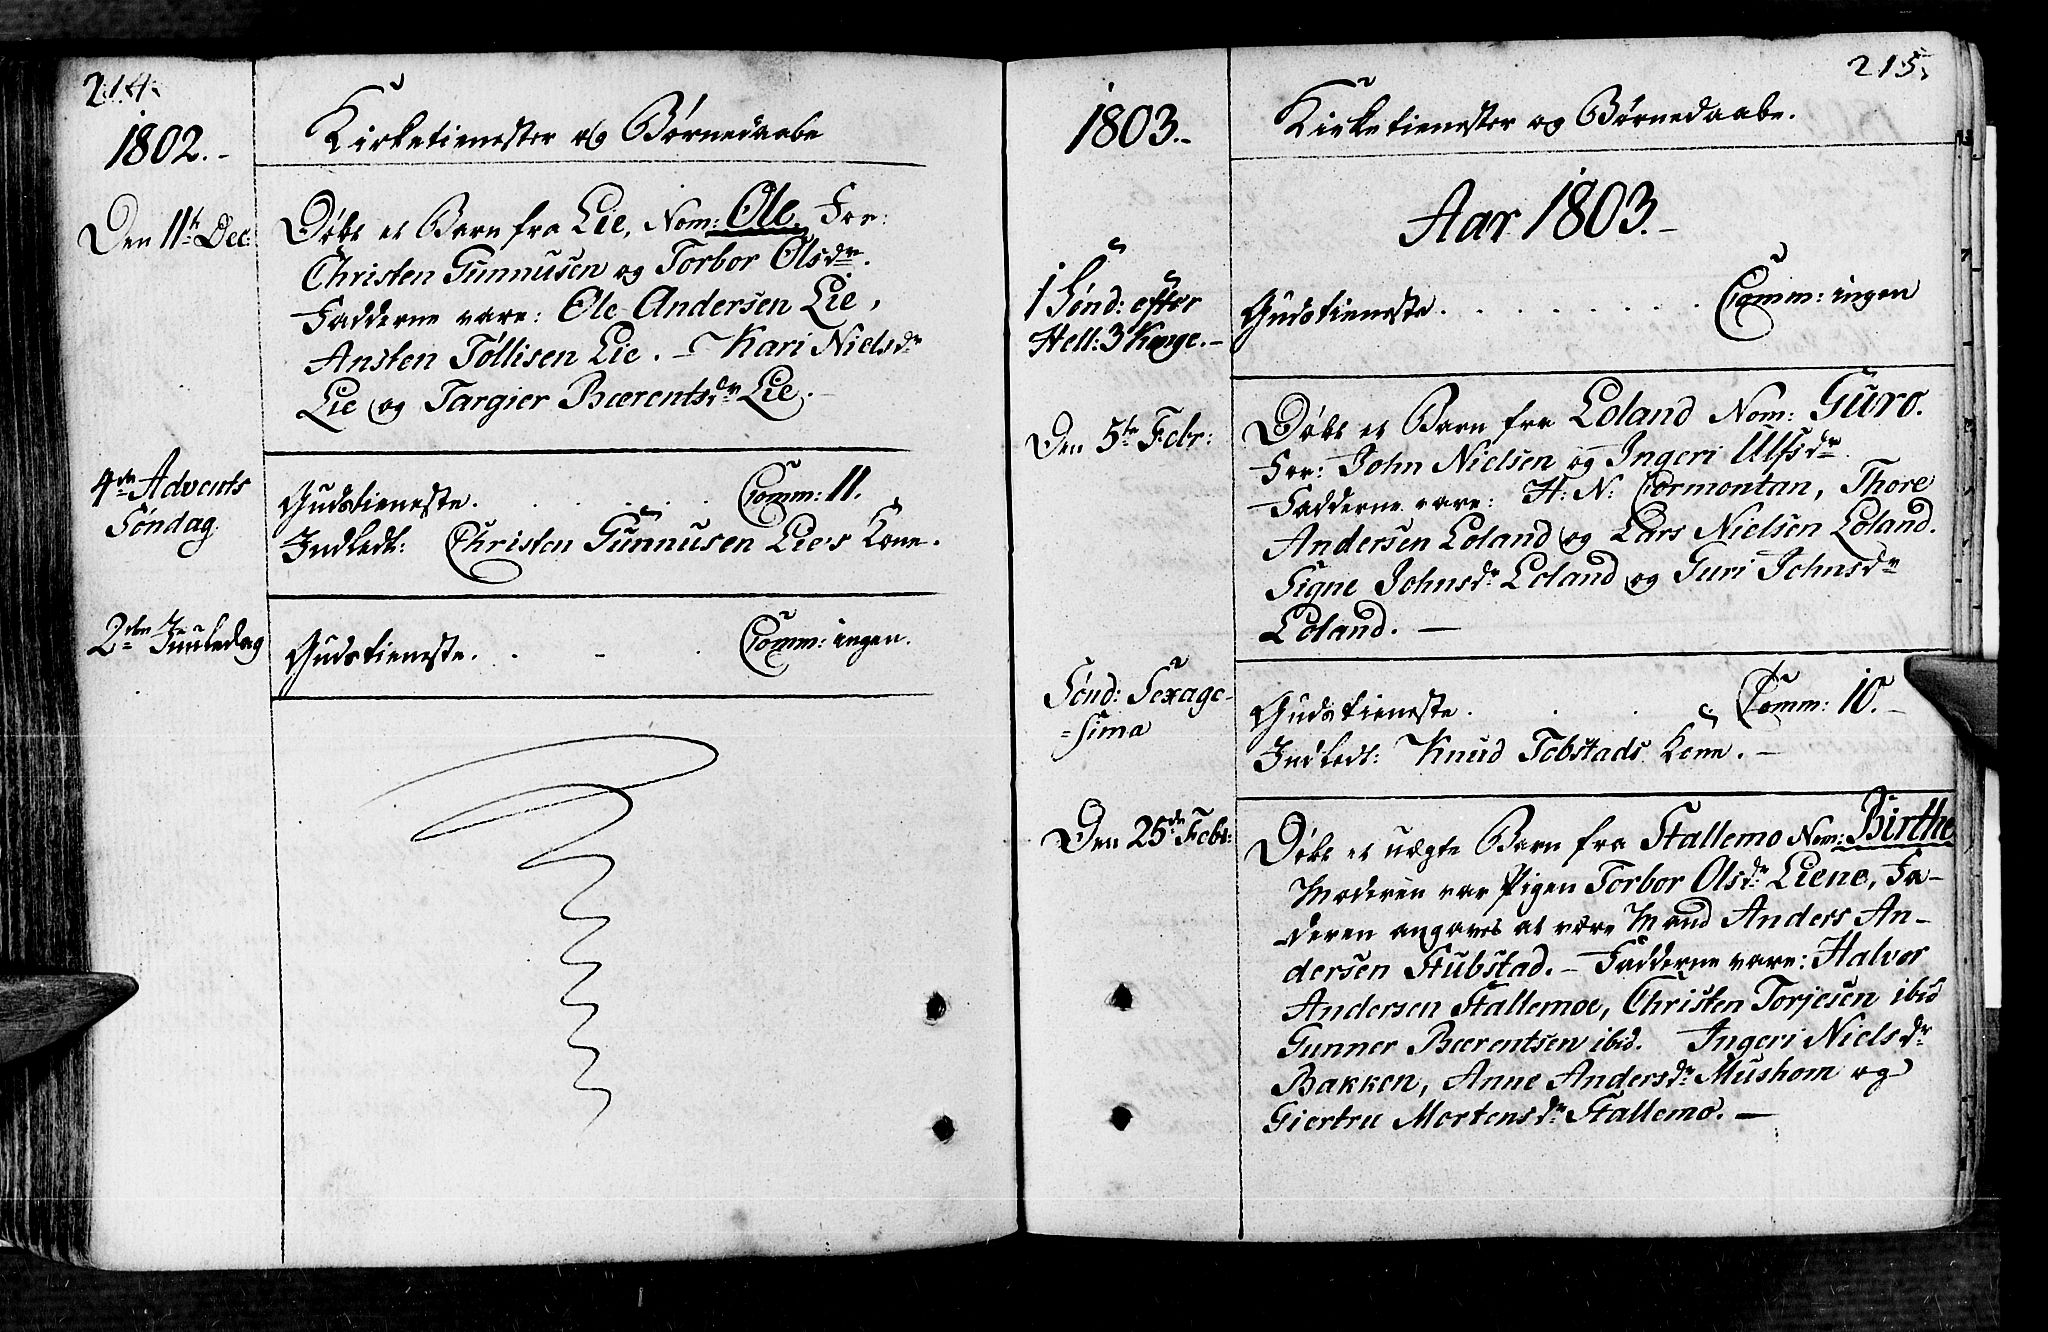 214.
1802.-
Kirketienester og Børnedaabe
Den 11te Dec:
Døbt et Barn fra Lie, Nom: Ole. For:
Christen Gunnusen og Torbor Olsdr.
Fadderne vare: Ole Andersen Lie,
Ansten Tøllisen Lie. - Kari Nielsdr
Lie og Targier Bærentsdr Lie.
4de Advents
Søndag.
Gudstieneste. . . . . Comm: 11.
Indledt: Christen Gunnusen Lie's Kone.
2den Juuledag
Gudstieneste. . - . Comm: ingen.
215.
1803.-
Kirketienester og Børnedaabe.
Aar 1803.-
1 Sønd: efter
Hell: 3 Konge.-
Gudstieneste. . . . . . . Comm: ingen
Den 5te Febr:
Døbt et Barn fra Loland Nom: Guro.
For: John Nielsen og Ingeri Ulfsdr.
Fadderne vare: H: N: Cormontan, Thore
Andersen Loland og Lars Nielsen Loland.
Signe Johnsdr Loland og Guri Johnsdr
Loland. -
Sønd: Sexage-
=sima
Gudstieneste. . . . Comm: 10.-
Indledt: Knud Tobstads Kone. -
Den 25de Febr:
Døbt et uægte Barn fra Stallemo Nom: Birthe
Moderen var Pigen Torbor Olsdr Liene, Fa-
deren angaves at være Mand Anders An-
dersen Stubstad. - Fadderne vare: Halvor
Andersen Stallemoe, Christen Torjesen ibid
Gunner Bærentsen ibid. Ingeri Nielsdr
Bakken, Anne Andersdr Mushom og
Giertru Mortensdr Stallemo. -